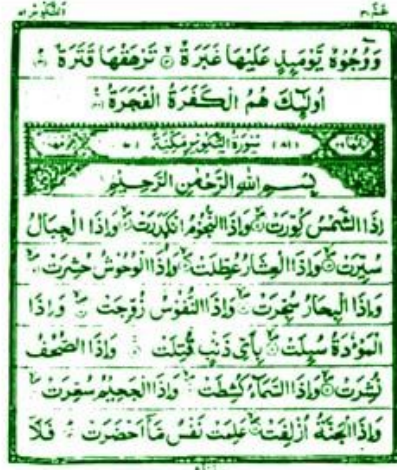 عَمَّ ٣٠ التَّكْوِيْر ٨١
وَوُجُوْهٌ يَّوْمَىِٕذٍ عَلَيْهَا غَبَرَةٌ تَرْهَقُهَا قَتَرَةٌ
اُولٰٓىِٕكَ هُمُ الْكَفَرَةُ الْفَجَرَةُ
(٨١) سُوْرَةُ التَّكْوِيْرِ مَكِّيَّةٌ (٧)
بِسْمِ اللهِ الرَّحْمٰنِ الرَّحِيْمِ
اِذَا الشَّمْسُ كُوِّرَتْ وَاِذَا النُّجُوْمُ انْكَدَرَتْ وَاِذَا الْجِبَالُ
سُيِّرَتْ وَاِذَا الْعِشَارُ عُطِّلَتْ وَاِذَا الْوُحُوْشُ حُشِرَتْ
وَاِذَا الْبِحَارُ سُجِّرَتْ وَاِذَا النُّفُوْسُ زُوِّجَتْ وَاِذَا
الْمَوْءٗدَةُ سُىِٕلَتْ بِاَيِّ ذَنْۢبٍ قُتِلَتْ وَاِذَا الصُّحُفُ
نُشِرَتْ وَاِذَا السَّمَآءُ كُشِطَتْ وَاِذَا الْجَحِيْمُ سُعِّرَتْ
وَاِذَا الْجَنَّةُ اُزْلِفَتْ عَلِمَتْ نَفْسٌ مَّاۤ اَحْضَرَتْ فَلَاۤ